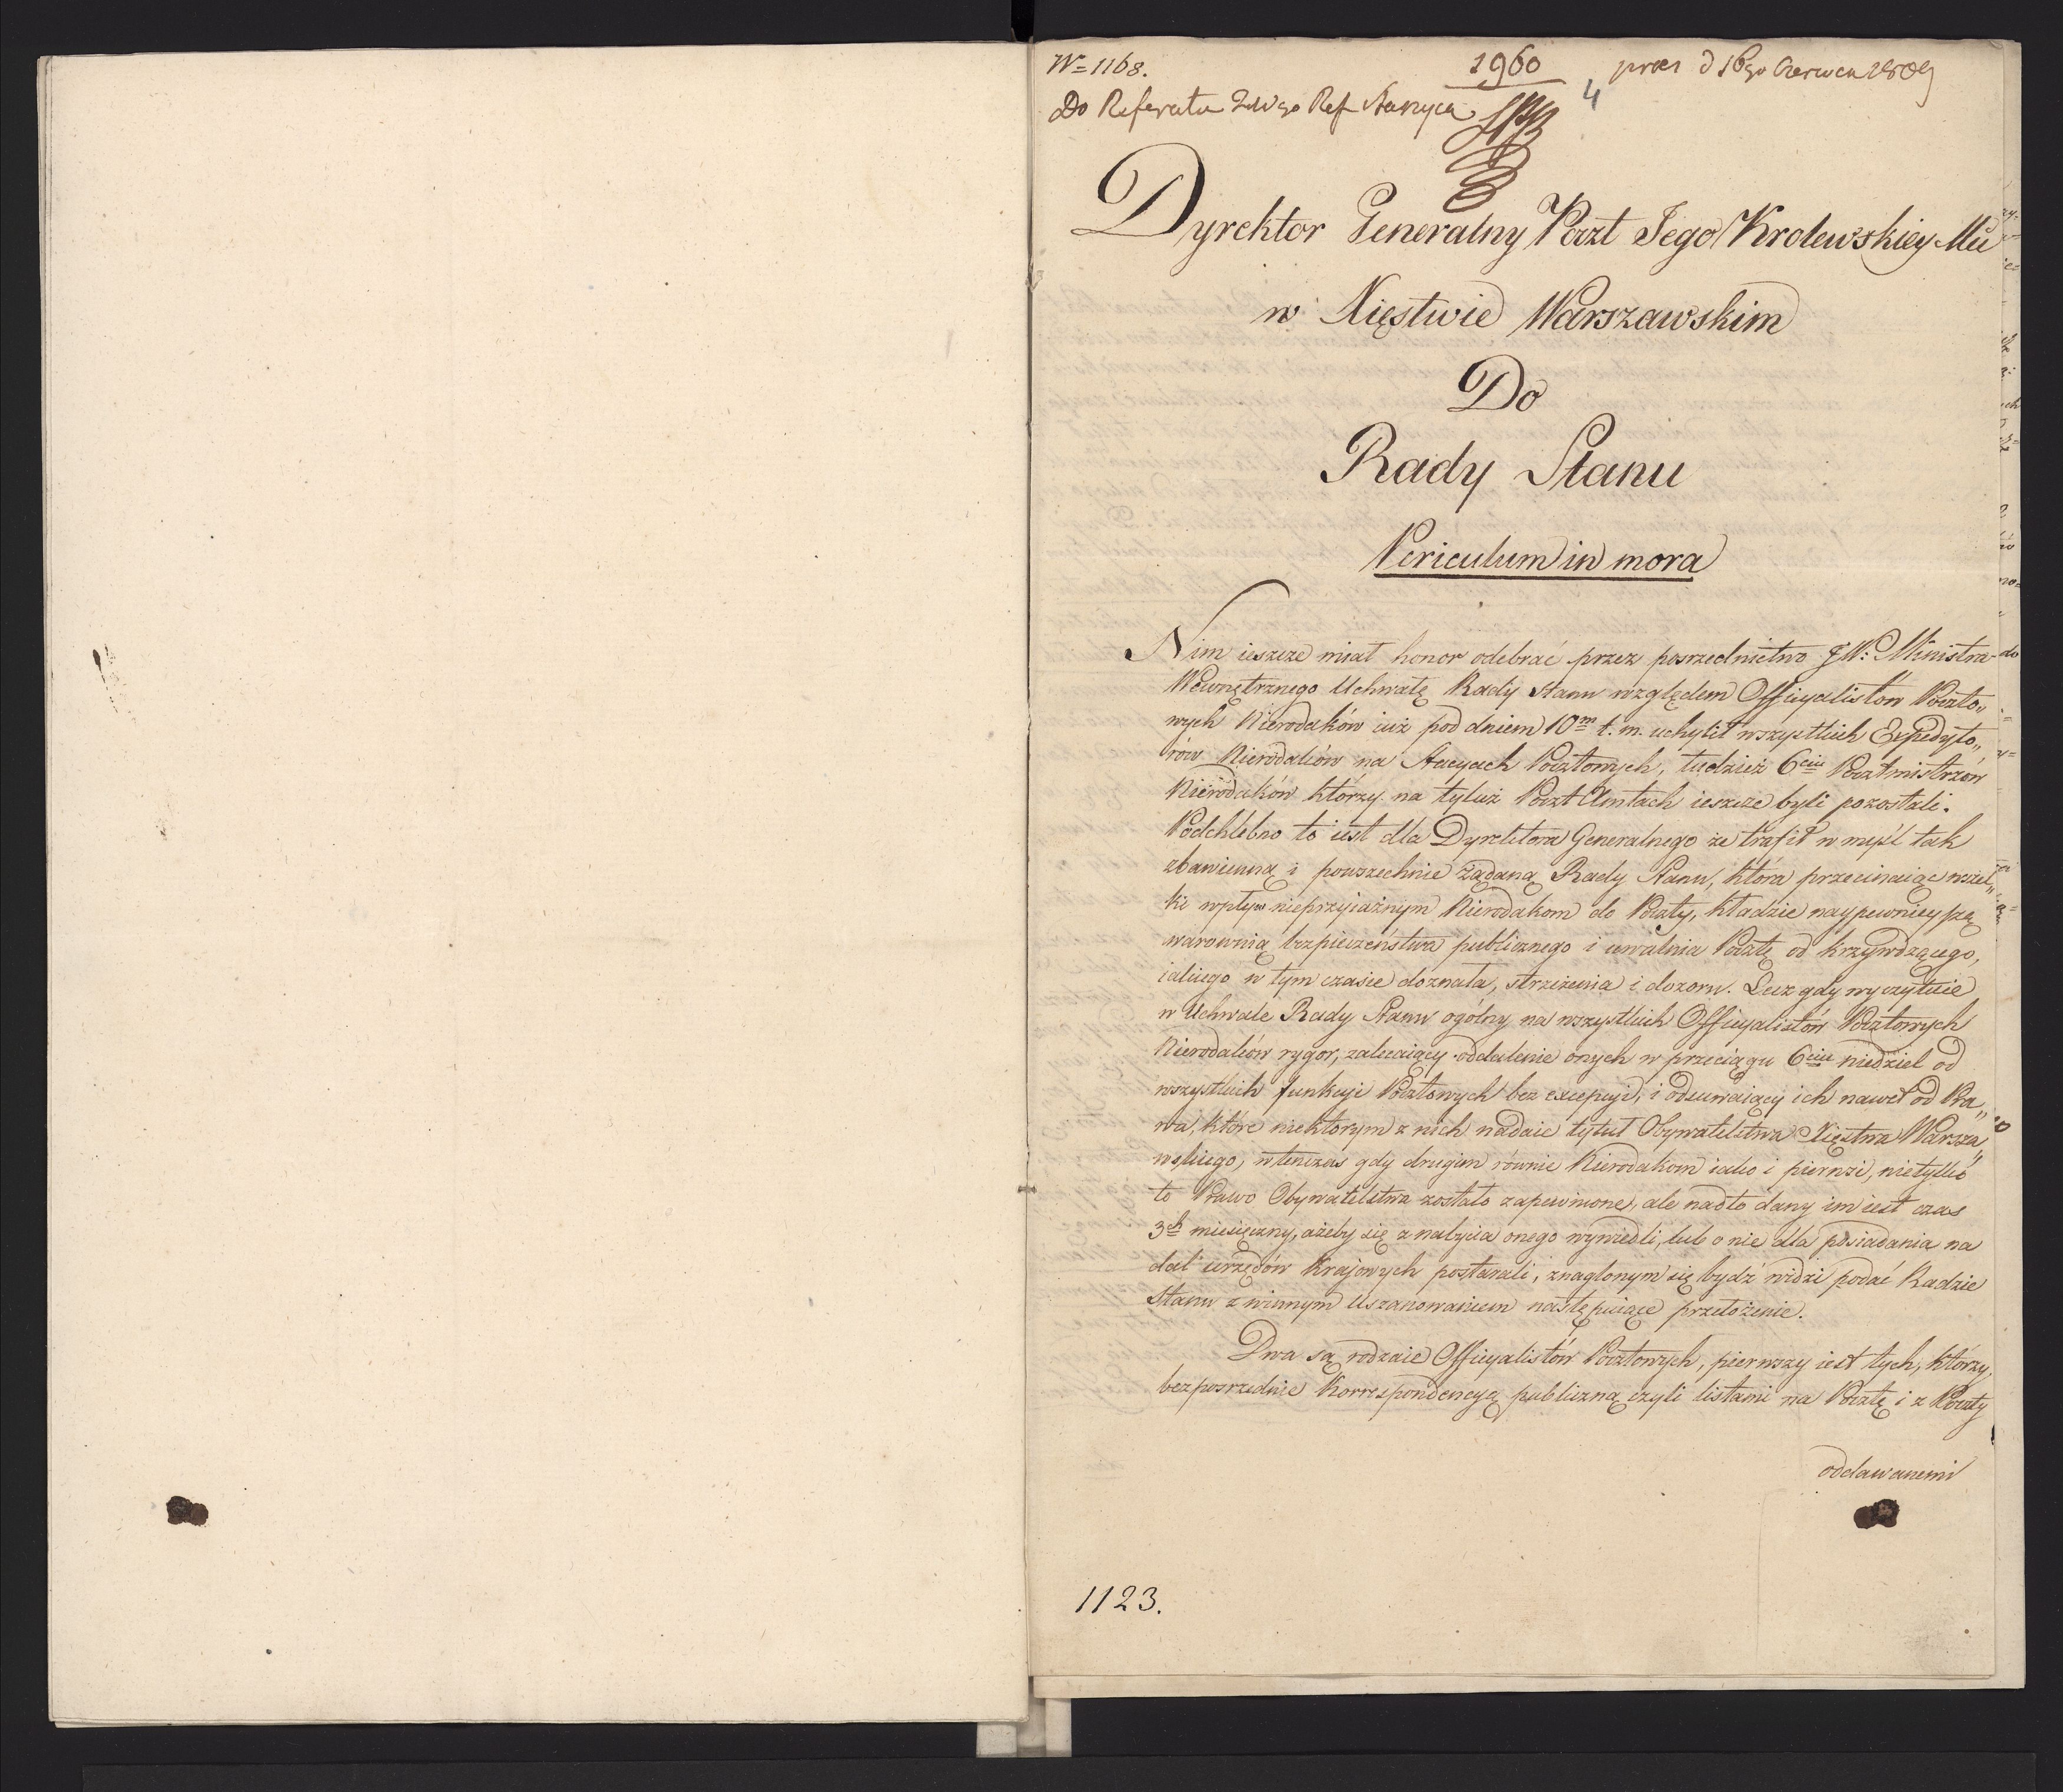 N= 1168.
1960
4
praes d 16go Czerwca 1809
Do Referatu JWgo Ref Staszyca
Dyrektor Generalny Poczt Jego Krolewskiey Mci
w Xięstwie Warszawskim
Do
Rady Stanu
Periculum in mora
Nim ieszcze miał honor odebrać przez posrzednictwo JW: Ministra
Wewnętrznego Uchwałę Rady Stanu względem Officyalistow Poczto„
wych Nierodaków iuż pod dniem 10m t. m. uchylił wszystkich Expedyto„
rów Nierodaków na Stacyach Pocztowych, tudzież 6ciu Pocztmistrzów
Nierodaków którzy na tyluż Poczt Amtach ieszcze byli pozostali.
Podchlebno to iest dla Dyrektora Generalnego że trafił w myśl tak
zbawienną i powszechnie żądaną Rady Stanu, która przecinaiąc wszel„
ki wpływ nieprzyiaźnym Nierodakom do Poczty, kładzie naypewnieyszą
warownią bezpieczeństwa publicznego i uwalnia Pocztę od krzywdzącego,
iakiego w tym czasie doznała, strzeżenia i dozoru. Lecz gdy wyczytuie
w Uchwale Rady Stanu ogólny na wszystkich Officyalistów Pocztowych
Nierodaków rygor, zalecaiący oddalenie onych w przeciągu 6ciu niedziel od
wszystkich funkcyi Pocztowych bez excepcyi, i odsuwaiący ich nawet od Pra„
wa, które niektorym z nich nadaie tytuł Obywatelstwa Xięstwa Warsza„
wskiego, wtenczas gdy drugim równie Nierodakom iako i pierwsi, nietylko
to Prawo Obywatelstwa zostało zapewnione, ale nadto dany im iest czas
3ch miesięczny, ażeby się z nabycia onego wywiedli, lub o nie dla posiadania na
dal urzędów Kraiowych postarali, znaglonym się bydź widzi podać Radzie
Stanu z winnym uszanowaniem następuiące przełożenie.
Dwa są rodzaie Officyalistów Pocztowych, pierwszy iest tych, którzy,
bezposrzednie Korrespondencyą publiczną czyli listami na Pocztę i z Poczty
oddawanemi
1123.